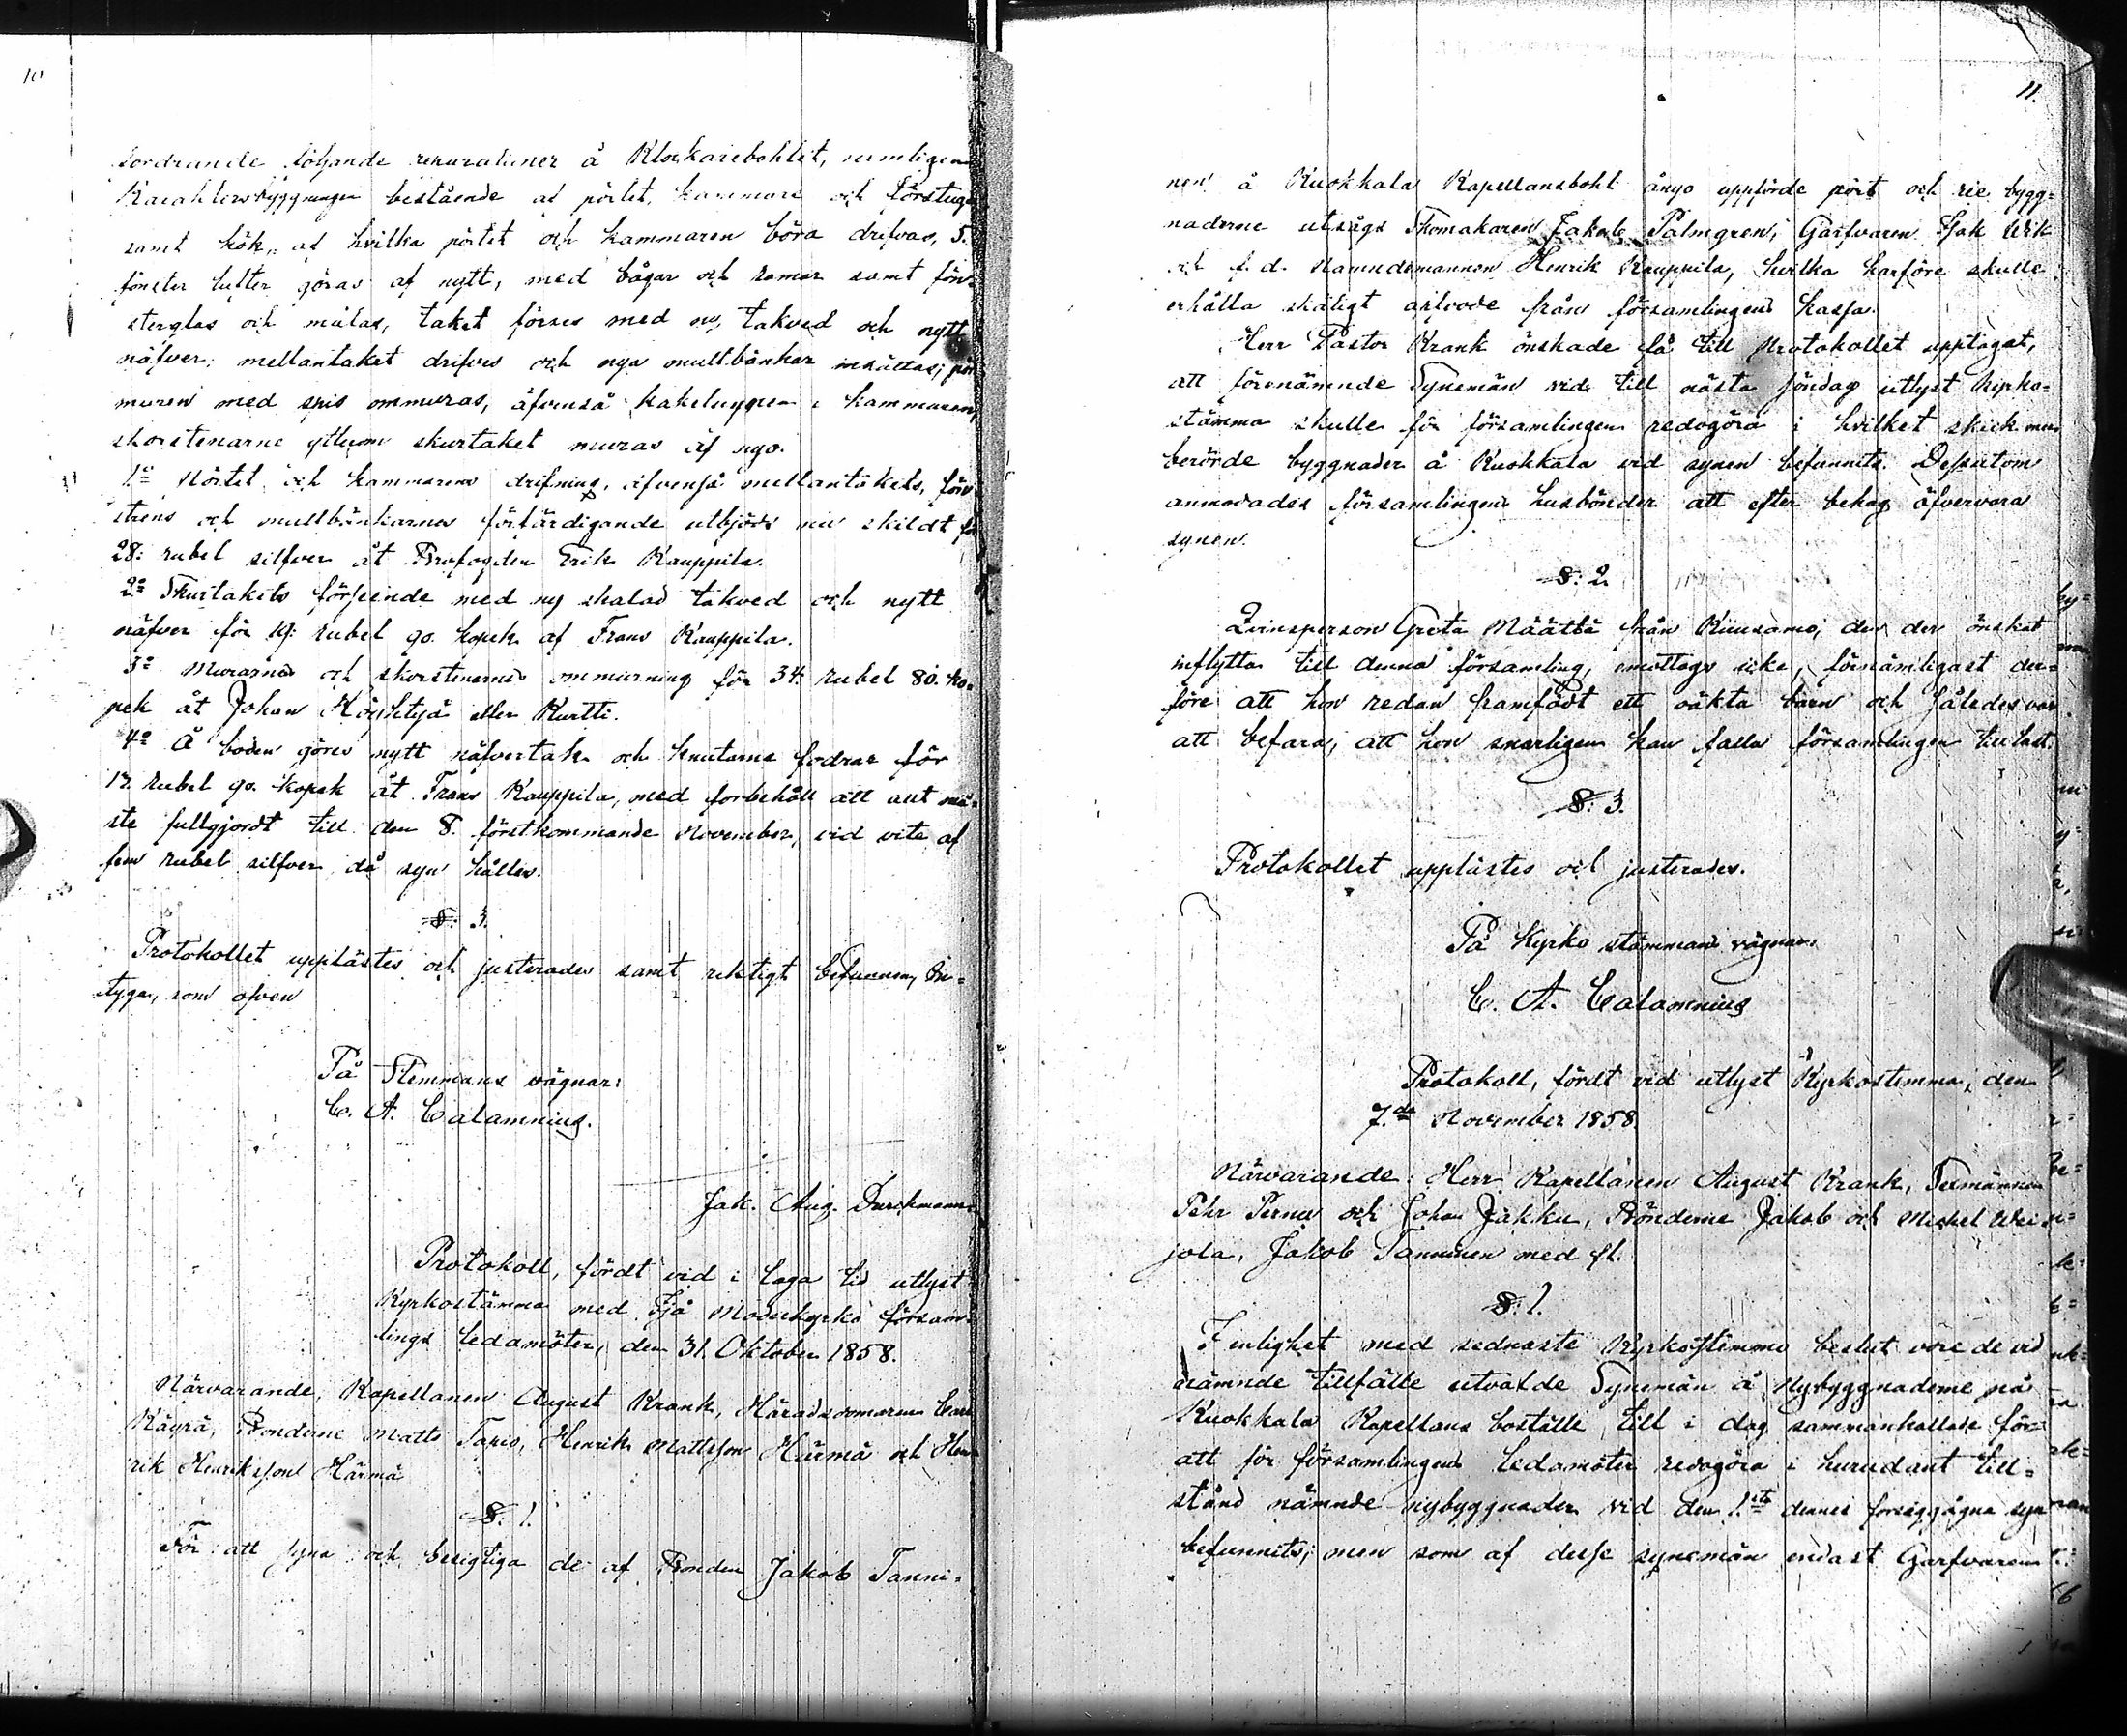 10
fordrande följande reparationer å Klockarebohlet, nemligen
Karakters byggningen bestående af pörtet, kammare och förstuga
samt kök, af hvilka pörtet och kammaren böra drifvas, 5.
fönster lufter göras af nytt, med bågar och ramar samt fön-
sterglas och målas, taket förses med ny takved och nytt
näfver; mellantaket drifves och nya mullbänkar insättas;
muren med spis ommuras, äfvenså kakelugnen i kammaren,
skorstenarne ytterom skurtaket muras af nyo.
1o Pörtet och kammarens drifning, äfvenså mellantakets, fön-
strens och mullbänkarnes förfärdigande utbjöds skildt för
28: rubel silfver åt Profogden Erik Kauppila.
2o Skurtakets förseende med ny skalad takved och nytt
näfver för 19: rubel 90. kopek af Frans Kauppila.
3o Murarnes och skorstenarnes ommurning för 34: rubel 80. ko-
pek åt Johan Köykkyjä eller Kurtti.
4o Å boden göres nytt näfvertak och knutarne fodras för
17. rubel 90. kopek åt Frans Kauppila, med forbehåll att allt må-
ste fullgjordt till den 8. förstkommande November, vid vite af
fem rubel silfver, då syn hålles.
§: 3.
Protokollet upplästes och justerades samt riktigt befunnen, be-
tyga, som ofven
På Stemmans vägnar:
C. A. Calamnius.
Jak. Aug. Durchman
Protokoll, fördt vid i laga tid utlyst
Kyrkostämma med Ijå Moderkyrko försam-
lings ledamöter, den 31. Oktober 1858.
Närvarande, Kapellanen August Krank, Häradsdomaren Carl
Käyrä, Bönderne Matts Tapio, Henrik Mattsson Härmä och Hen-
rik Henriksson Härmä
§: 1.
För att syna och besigtiga de af Bonden Jakob Tanni-
11.
nen å Kuokkala Kapellansbohl ånyo uppförde pört och rie bygg-
naderne utsågs Skomakaren Jakob Palmgren, Garfvaren Isak Wik
och f. d. Namndemannen Henrik Kauppila, hvilka härföre skulle
erhålla skäligt arfvode från församlingens kassa.
Herr Pastor Krank önskade få till Protokollet upptaget,
att förenämnde Synemän vid till nästa söndag utlyst Kyrko-
stämma skulle för församlingen redogöra i hvilket skick mer-
berörde byggnader å Kuokkala vid synen befunnits. Dessutom
anmodades församlingens husbönder att efter behag öfvervara
synen.
§: 2.
Qvinsperson Greta Määttä från Kuusamo, den der önskat
inflytta till denna församling, emottogs icke, förnämligast der-
före att hon redan framfödt ett oäkta barn och således var
att befara, att hon snarligen kan falla församlingen till last.
§: 3.
Protokollet upplästes och justerades.
På Kyrko stämmans vägnar:
C. A. Calamnius
Protokoll, fördt vid utlyst Kyrkostemma, den
7.de November 1858.
Närvarande: Herr Kapellanen August Krank, Sexmännen
Pehr Pernu och Johan Jakku, Bönderne Jakob och Mickel Wei-
jola, Jakob Tanninen med fl.
§: 1.
I enlighet med sednaste Kyrkostemmo beslut vore de vid
nämnde tillfälle utvalde Synemän å Nybyggnaderne på
Kuokkala Kapellans boställe till i dag sammankallade för
att för församlingens ledamöter redogöra i hurudant till-
stånd nämnde nybyggnader vid den 1.sta dennes föreggågna syn
befunnits; men som af desse synemän endast Garfvaren